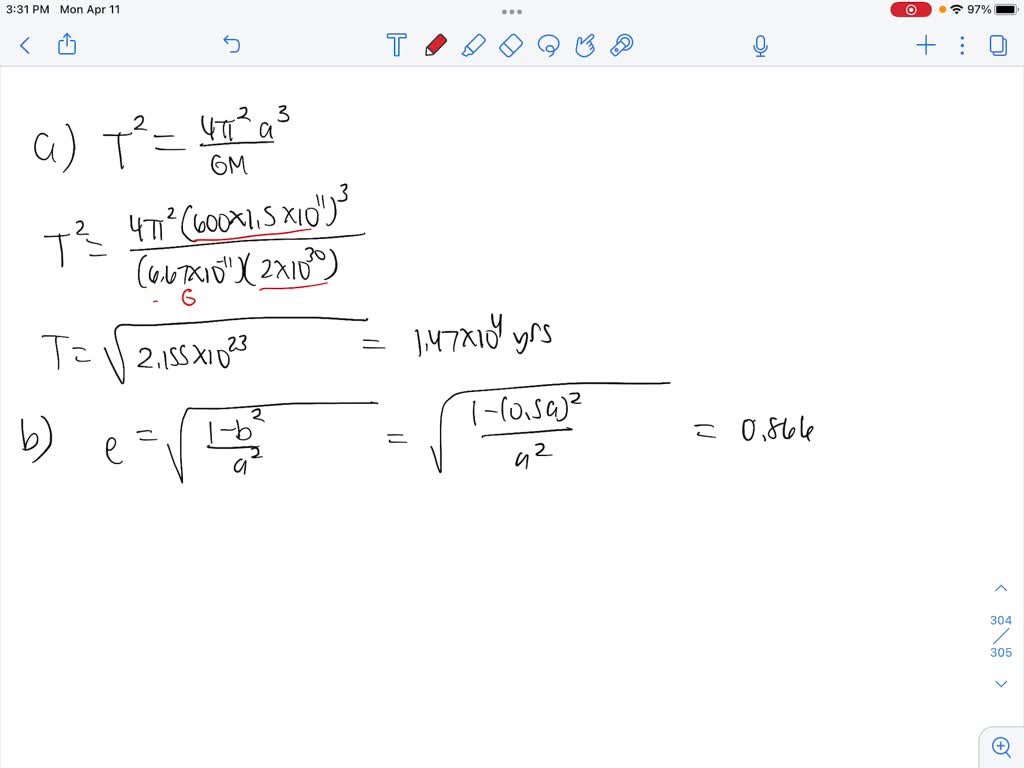 3:31 PM Mon Apr 11
97%
a) T² = 4π² a³ / GM
T² = 4π² (600×1.5×10¹¹)³ / (6.67×10⁻¹¹)(2×10³⁰)
G
T = √2.155×10²³ = 1.47×10⁴ yrs
b) e = √(1-b² / a²) = √(1-(0.5a)² / a²) = 0.866
304
305